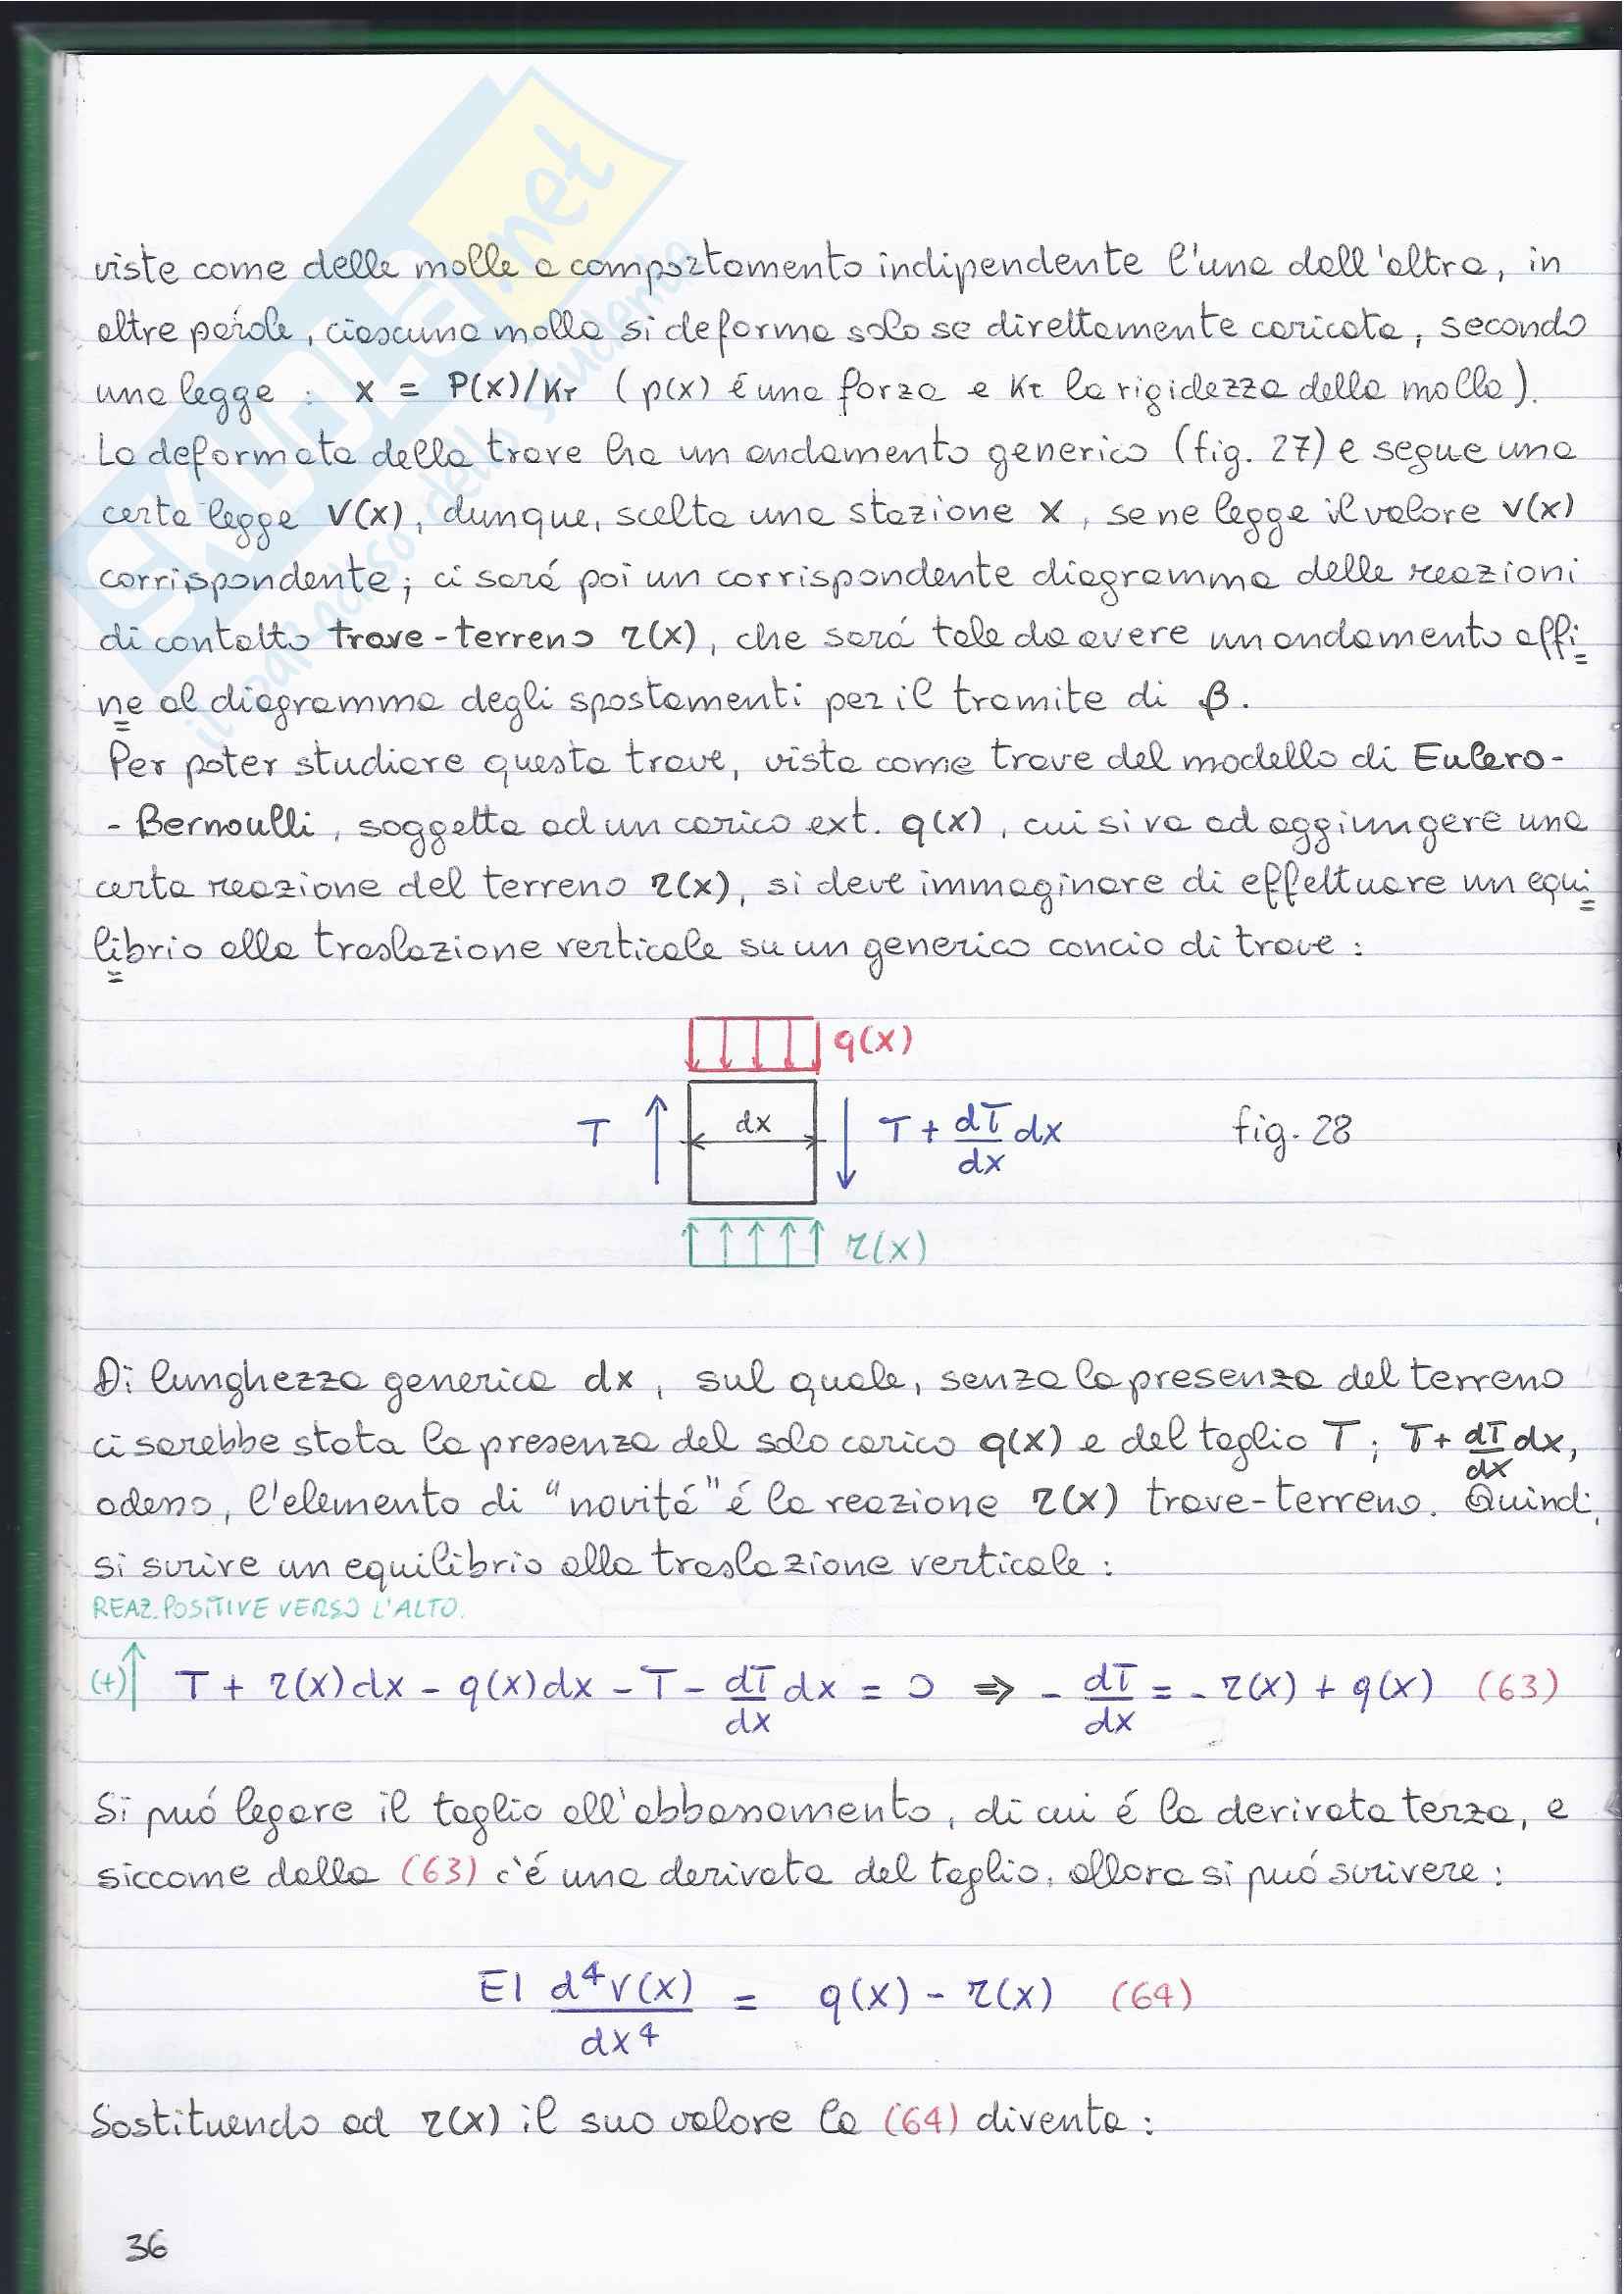 SKUOLA.net
il paradiso dello studente
viste come delle molle a comportamento indipendente l'una dall'altra, in
altre parole, ciascuna molla si deforma solo se direttamente caricata, secondo
una legge: x = P(x)/Kr (p(x) é una forza e Kr la rigidezza della molla).
La deformata della trave ha un andamento generico (fig. 27) e segue una
certa legge V(x), dunque, scelta una stazione x, se ne legge il valore v(x)
corrispondente; ci sará poi un corrispondente diagramma delle reazioni
di contatto trave-terreno r(x), che sará tale da avere un andamento affi
ne al diagramma degli spostamenti per il tramite di β.
Per poter studiare questa trave, vista come trave del modello di Eulero-
-Bernoulli, soggetta ad un carico ext. q(x), cui si va ad aggiungere una
certa reazione del terreno r(x), si deve immaginare di effettuare un equi
librio alla traslazione verticale su un generico concio di trave:
q(x)
T dx T + dT/dx dx fig. 28
r(x)
Di lunghezza generica dx, sul quale, senza la presenza del terreno
ci sarebbe stata la presenza del solo carico q(x) e del taglio T; T + dT/dx dx,
adesso, l'elemento di "novitá" é la reazione r(x) trave-terreno. Quindi,
si scrive un equilibrio alla traslazione verticale:
REAZ. POSITIVE VERSO L'ALTO.
(+)↑ T + r(x)dx - q(x)dx - T - dT/dx dx = 0 ⇒ - dT/dx = - r(x) + q(x) (63)
Si puó legare il taglio all'abbassamento, di cui é la derivata terza, e
siccome dalla (63) c'é una derivata del taglio, allora si puó scrivere:
EI d⁴v(x)/dx⁴ = q(x) - r(x) (64)
Sostituendo ad r(x) il suo valore la (64) diventa:
36